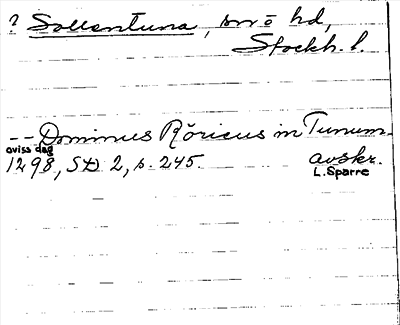 ? Sollentuna, sn o hd,
Stockh. l.
-- Dominus Röricus in Tunum
oviss dag
1298, SD 2, s. 245. avskr.
L. Sparre